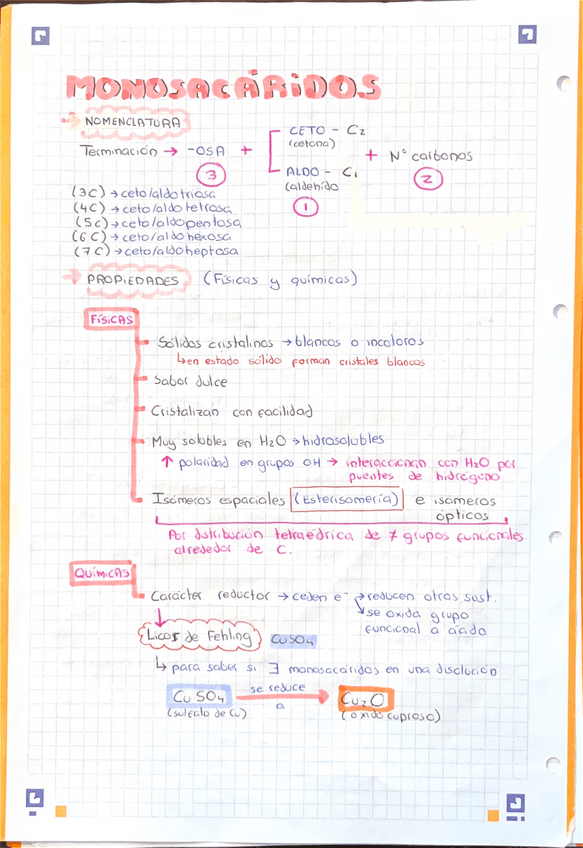 MONOSACÁRIDOS
NOMENCLATURA
Terminación → -OSA + CETO - C2 (cetona) + Nº carbonos
ALDO - C1 (aldehido
3 1 2
(3C) → ceto/aldotriosa
(4C) → ceto/aldo tetrosa
(5C) → ceto/aldopentosa
(6C) → ceto/aldohexosa
(7C) → ceto/aldoheptosa
PROPIEDADES (Físicas y químicas)
FÍSICAS
Sólidos cristalinos → blancos o incoloros
↳ en estado sólido forman cristales blancos
Sabor dulce
Cristalizan con facilidad
Muy solubles en H2O → hidrosolubles
↑ polaridad en grupos OH → interaccionan con H2O por
puentes de hidrógeno
Isómeros espaciales (Esterisomería) e isómeros
ópticos
Por distribución tetraédrica de ≠ grupos funcionales
alrededor de C.
QUÍMICAS
Carácter reductor → ceden e⁻ → reducen otros sust.
↘ se oxida grupo
funcional a ácido
Licor de Fehling CuSO4
↳ para saber si ∃ monosacáridos en una disolución
CuSO4 se reduce a → Cu2O
(sulfato de Cu) (oxido cuproso)